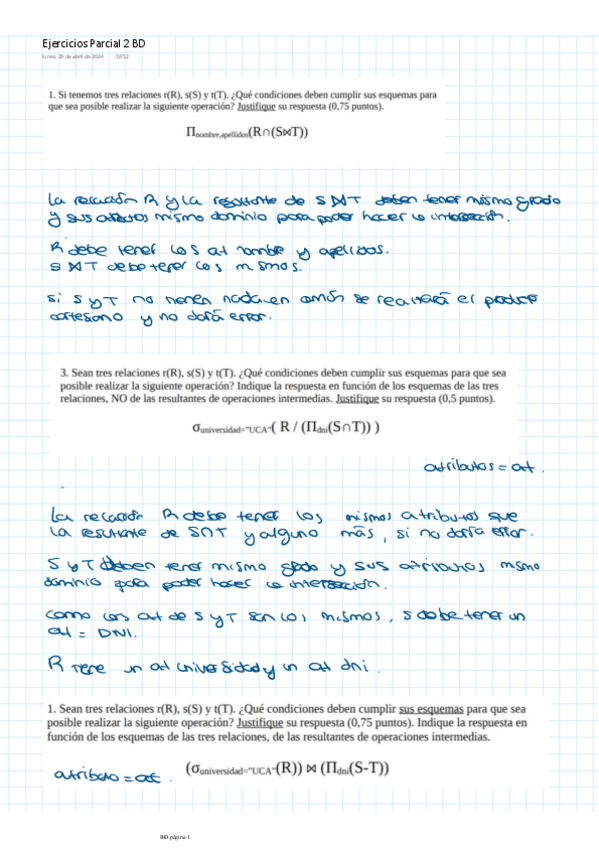 Ejercicios Parcial 2 BD
lunes, 29 de abril de 2024 18:52
1. Si tenemos tres relaciones r(R), s(S) y t(T). ¿Qué condiciones deben cumplir sus esquemas para
que sea posible realizar la siguiente operación? Justifique su respuesta (0,75 puntos).
Πnombre,apellidos(R∩(S⋈T))
La relación R y la resultante de S⋈T deben tener mismo grado
y sus atributos mismo dominio para poder hacer la intersección.
R debe tener los at nombre y apellidos.
S⋈T debe tener los mismos.
si S y T no tienen nada en común se realizará el producto
cartesiano y no dará error.
3. Sean tres relaciones r(R), s(S) y t(T). ¿Qué condiciones deben cumplir sus esquemas para que sea
posible realizar la siguiente operación? Indique la respuesta en función de los esquemas de las tres
relaciones, NO de las resultantes de operaciones intermedias. Justifique su respuesta (0,5 puntos).
σuniversidad="UCA"( R / (Πdni(S∩T)) )
atributos = at.
La relación R debe tener los mismos atributos que
la resultante de S∩T y alguno más, si no daría error.
S y T deben tener mismo grado y sus atributos mismo
dominio para poder hacer la intersección.
como los at de S y T son los mismos, S debe tener un
at = DNI.
R tiene un at universidad y un at dni.
1. Sean tres relaciones r(R), s(S) y t(T). ¿Qué condiciones deben cumplir sus esquemas para que sea
posible realizar la siguiente operación? Justifique su respuesta (0,75 puntos). Indique la respuesta en
función de los esquemas de las tres relaciones, de las resultantes de operaciones intermedias.
(σuniversidad="UCA"(R)) ⋈ (Πdni(S-T))
atributo = at.
BD página 1